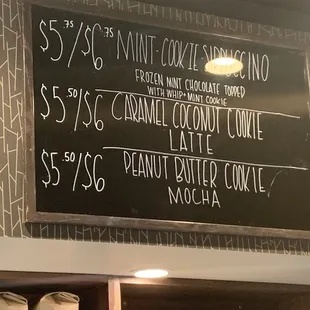 $5.75/$6.75 MINT-COOKIE-SIPPUCCINO
FROZEN MINT CHOCOLATE TOPPED
WITH WHIP + MINT COOKIE
$5.50/$6 CARAMEL COCONUT COOKIE
LATTE
$5.50/$6 PEANUT BUTTER COOKIE
MOCHA